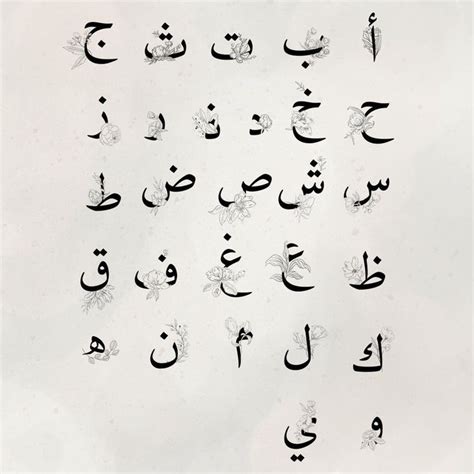 أ ب ت ث ج
ح خ د ذ ر ز
س ش ص ض ط
ظ ع غ ف ق
ك ل م ن ه
و ي